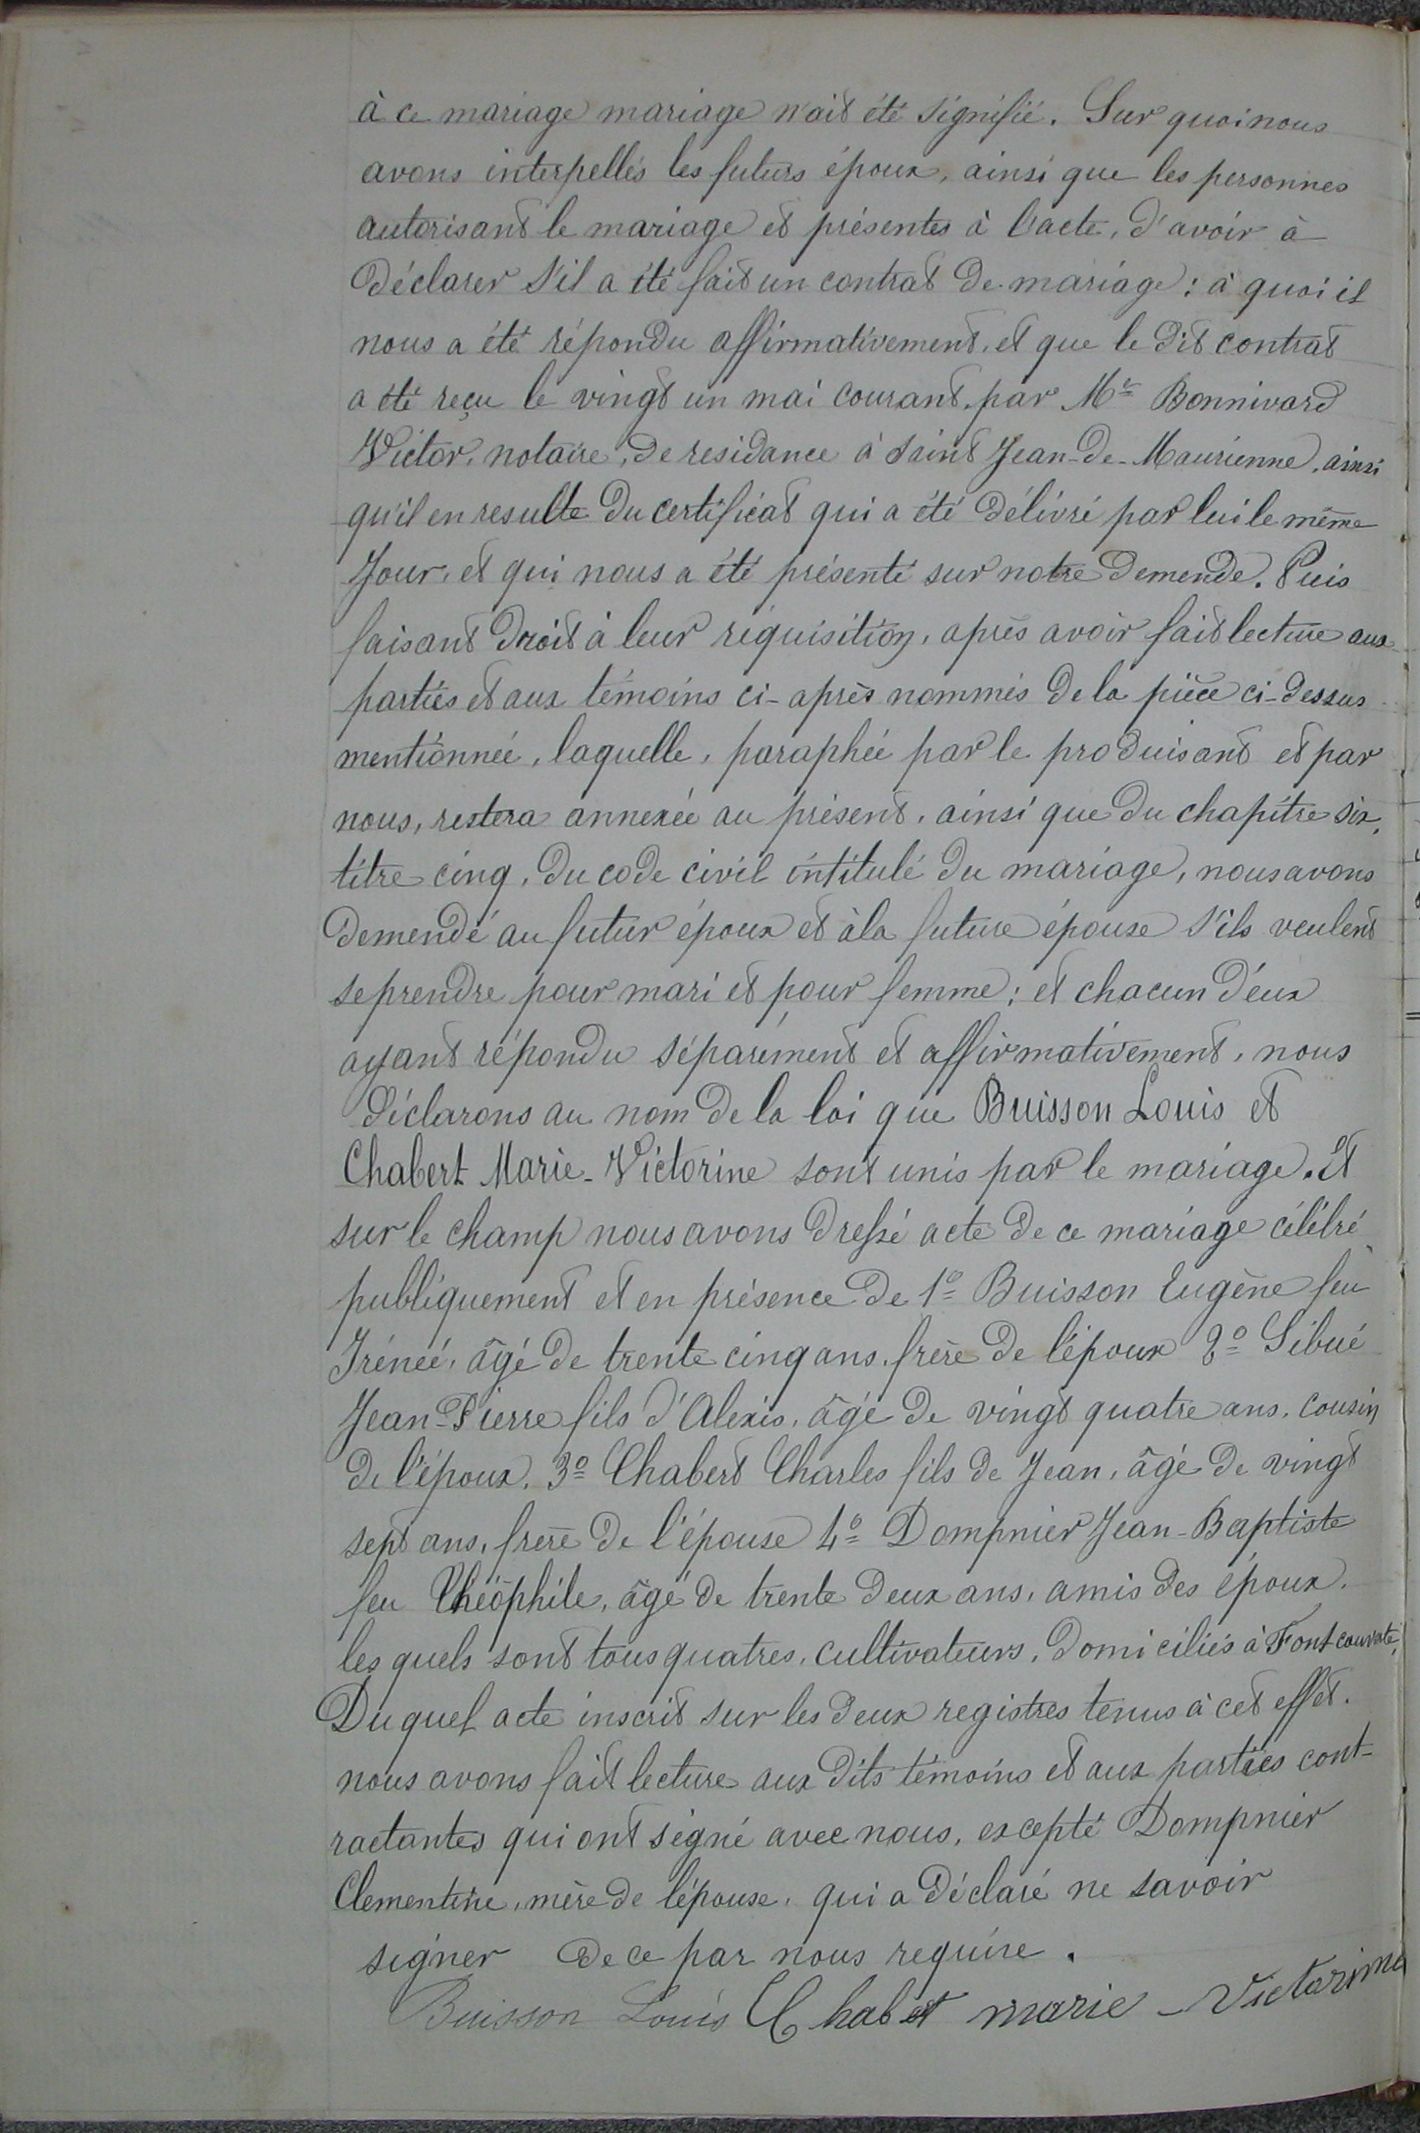 à ce mariage mariage n'ait été signifié. Sur quoi nous
avons interpellés les futurs époux, ainsi que les personnes
autorisant le mariage et présentes à l'acte, d'avoir à
déclarer s'il a été fait un contrat de mariage : à quoi il
nous a été répondu affirmativement, et que le dit contrat
a été reçu le vingt un mai courant, par Me Bonnivard
Victor, notaire, de residance à saint Jean-de-Maurienne, ainsi
qu'il en resulte du certificat qui a été délivré par lui le même
Jour, et qui nous a été présenté sur notre demende. Puis
faisant droit à leur réquisition, après avoir fait lecture aux
parties et aux témoins ci-après nommés de la pièce ci-dessus
mentionnée, laquelle, paraphée par le produisant et par
nous, restera annexée au présent, ainsi que du chapitre six,
titre cinq, du code civil intitulé du mariage, nous avons
demendé au futur époux et à la future épouse s'ils veulent
se prendre pour mari et pour femme ; et chacun d'eux
ayant répondu séparément et affirmativement, nous
déclarons au nom de la loi que Buisson Louis et
Chabert Marie-Victorine sont unis par le mariage. Et
sur le champ nous avons dressé acte de ce mariage célébré
publiquement et en présence de 1º Buisson Eugène feu
Irénée, âgé de trente cinq ans, frère de l'époux 2º Sibué
Jean-Pierre fils d'Alexis, âgé de vingt quatre ans, cousin
de l'époux, 3º Chabert Charles fils de Jean, âgé de vingt
sept ans, frère de l'épouse 4º Dompnier Jean-Baptiste
feu Théophile, âgé de trente deux ans, amis des époux,
les quels sont tous quatres, cultivateurs, domiciliés à Fontcouverte,
Du quel acte inscrit sur les deux registres tenus à cet effet,
nous avons fait lecture aux dits témoins et aux parties cont-
ractantes qui ont signé avec nous, excepté Dompnier
Clementine, mère de l'épouse, qui a déclaré ne savoir
signer de ce par nous requise.
Buisson Louis Chabert marie-Victorine